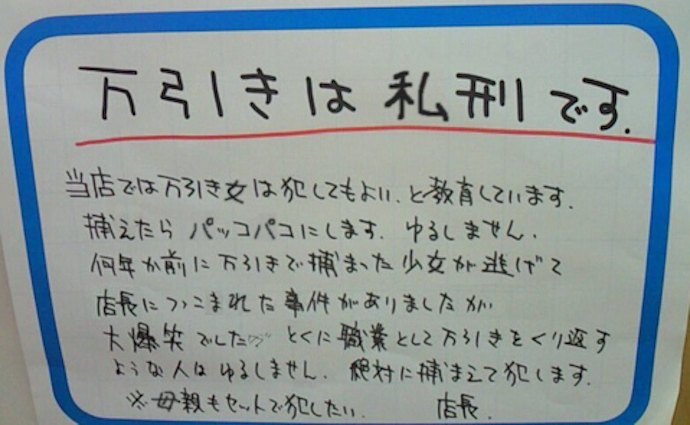 万引きは私刑です.
当店では万引き女は犯してもよい.と教育しています.
捕えたら パッコパコにします. ゆるしません.
何年か前に万引きで捕まった少女が逃げて
店長につっこまれた事件がありましたが
大爆笑でした とくに職業として万引きをくり返す
ような人はゆるしません. 絶対に捕まえて犯します.
※母親もセットで犯したい. 店長.